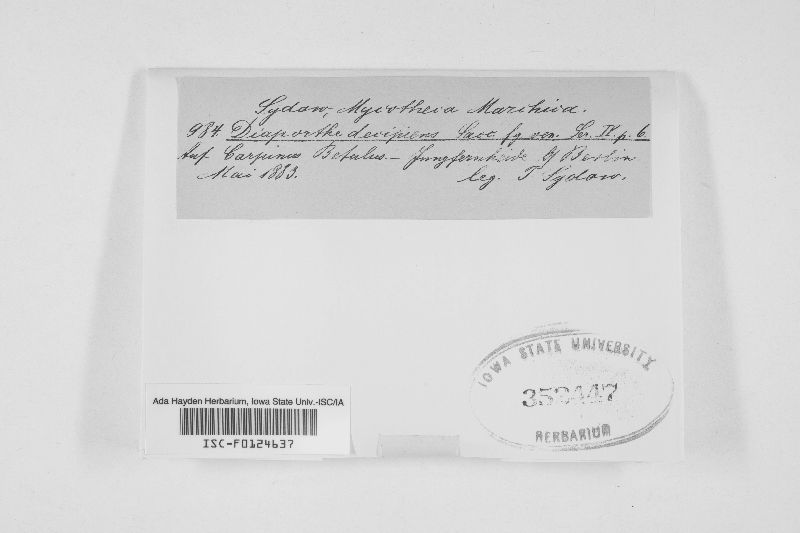 Sydow, Mycotheca Marchica.
984. Diaporthe decipiens Sacc. fg ven. Ser. IV. p. 6.
Auf Carpinus Betulus. – Jungfernheide b/ Berlin
Mai 1883. leg. P Sydow.
IOWA STATE UNIVERSITY
HERBARIUM
Ada Hayden Herbarium, Iowa State Univ.-ISC/IA
ISC-F0124637